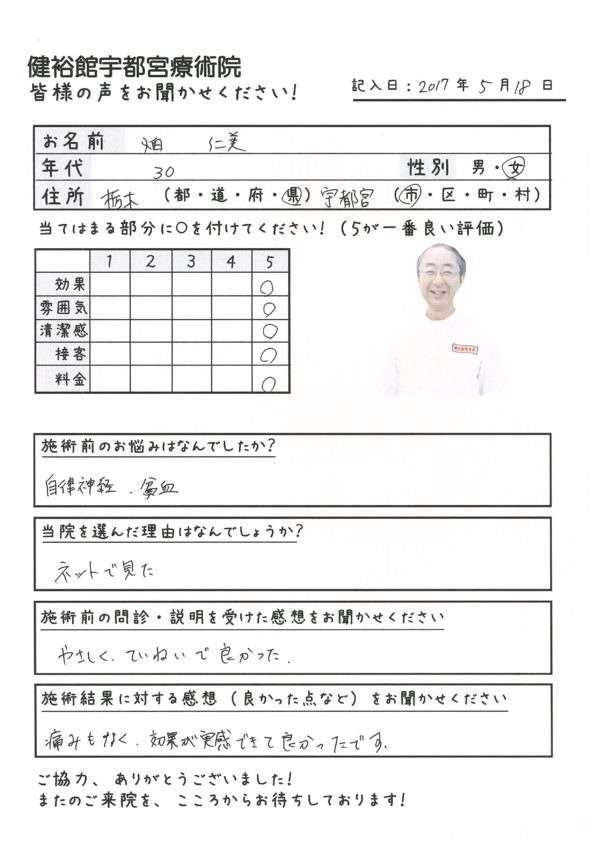 健裕館宇都宮療術院
皆様の声をお聞かせください!
記入日:2017年5月18日
お名前 畑 仁美
年代 30 性別 男・女
住所 栃木(都・道・府・県)宇都宮(市・区・町・村)
当てはまる部分に○を付けてください!(5が一番良い評価)
1 2 3 4 5
効果 ○
雰囲気 ○
清潔感 ○
接客 ○
料金 ○
施術前のお悩みはなんでしたか?
自律神経、貧血
当院を選んだ理由はなんでしょうか?
ネットで見た
施術前の問診・説明を受けた感想をお聞かせください
やさしく、ていねいで良かった。
施術結果に対する感想(良かった点など)をお聞かせください
痛みもなく、効果が実感できて良かったです。
ご協力、ありがとうございました!
またのご来院を、こころからお待ちしております!